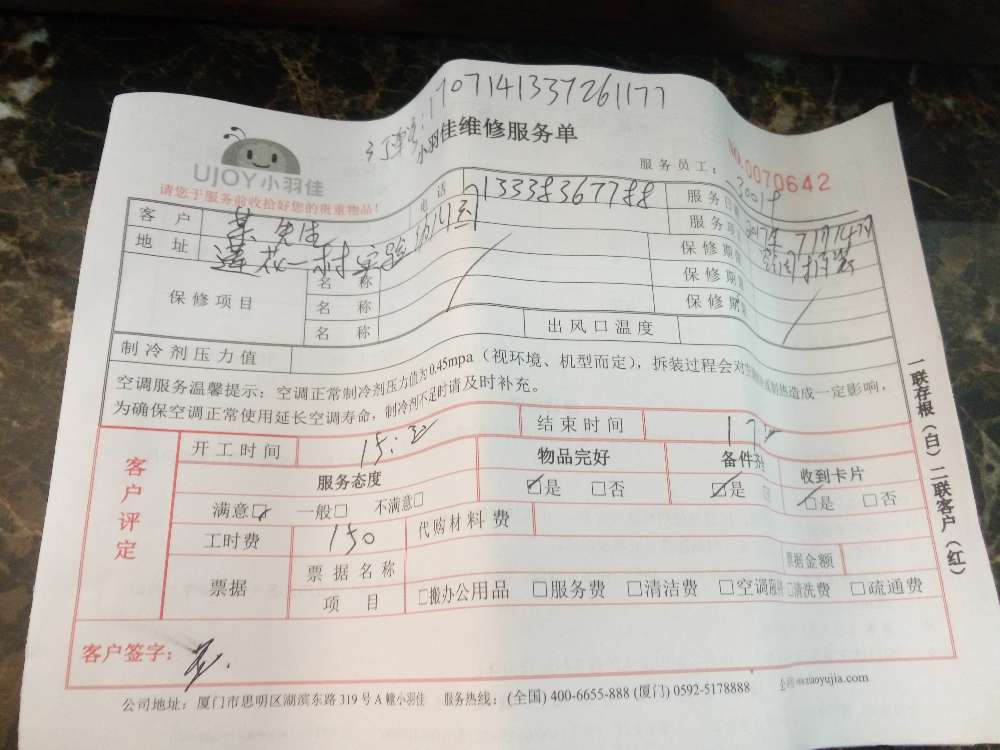 1707141337261177
小羽佳维修服务单
UJOY小羽佳
请您于服务前收拾好您的贵重物品!
服务员工: 30018
NO.0070642
客户 先生 电话 13338367788 服务日期
地址 莲花一村 服务项
保修项目 名称 保修期
名称 保修期
名称 保修期
制冷剂压力值 出风口温度
空调服务温馨提示：空调正常制冷剂压力值为0.45mpa（视环境、机型而定），拆装过程会对空 热造成一定影响，
为确保空调正常使用延长空调寿命，制冷剂不足时请及时补充。
客户评定
开工时间 15: 结束时间 17
服务态度 物品完好 备件 收到卡片
满意□ 一般□ 不满意□ □是 □否 □是 □是 □否
工时费 150 代购材料费
票据 票据名称 票据金额
项目 □搬办公用品 □服务费 □清洁费 □空调 □清洗费 □疏通费
客户签字：
公司地址：厦门市思明区湖滨东路319号A幢小羽佳 服务热线：(全国) 400-6655-888 (厦门) 0592-5178888 xiaoyujia.com
一联存根（白）二联客户（红）